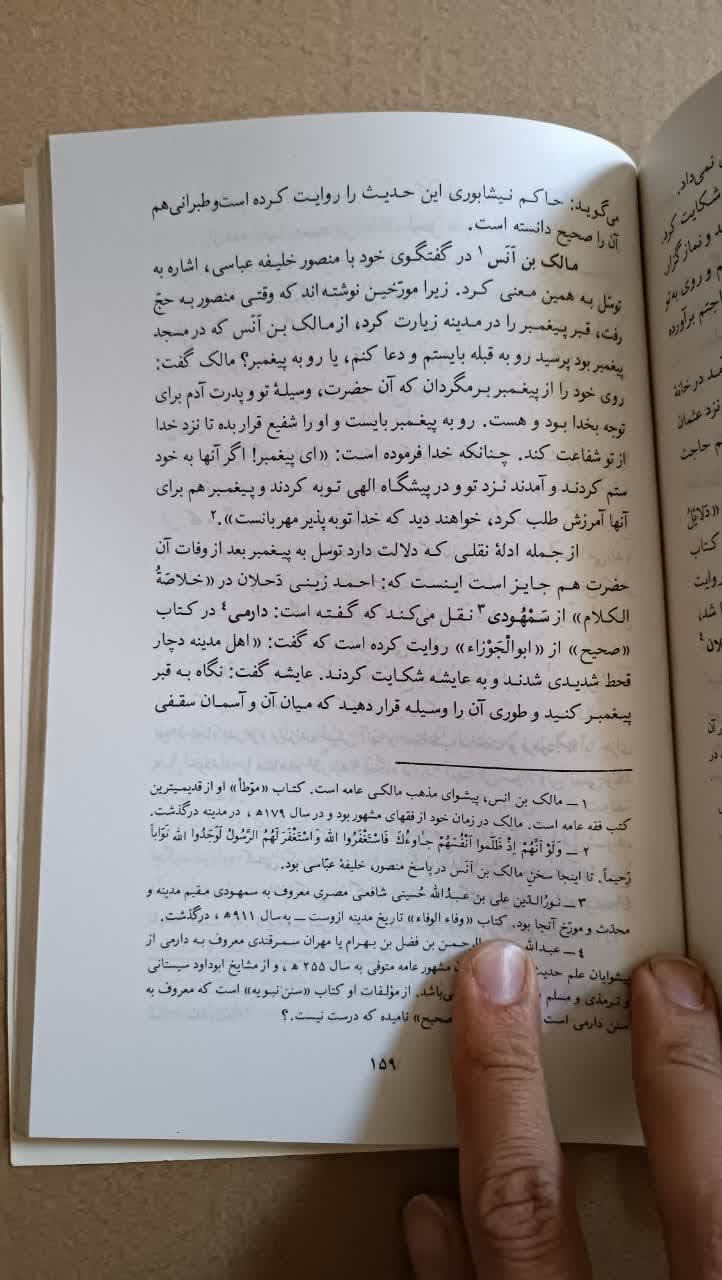 می‌گوید: حاکم نیشابوری این حدیث را روایت کرده است و طبرانی هم
آن را صحیح دانسته است.
مالک بن اَنَس ۱ در گفتگوی خود با منصور خلیفه عباسی، اشاره به
توسّل به همین معنی کرد. زیرا مورّخین نوشته‌اند که وقتی منصور به حجّ
رفت، قبر پیغمبر را در مدینه زیارت کرد، از مالک بن اَنَس که در مسجد
پیغمبر بود پرسید رو به قبله بایستم و دعا کنم، یا رو به پیغمبر؟ مالک گفت:
روی خود را از پیغمبر برمگردان که آن حضرت، وسیلهٔ تو و پدرت آدم برای
توجه بخدا بود و هست. رو به پیغمبر بایست و او را شفیع قرار بده تا نزد خدا
از تو شفاعت کند. چنانکه خدا فرموده است: «ای پیغمبر! اگر آنها به خود
ستم کردند و آمدند نزد تو و در پیشگاه الهی توبه کردند و پیغمبر هم برای
آنها آمرزش طلب کرد، خواهند دید که خدا توبه‌پذیر مهربانست».۲
از جمله ادلهٔ نقلی که دلالت دارد توسل به پیغمبر بعد از وفات آن
حضرت هم جایز است اینست که: احمد زینی دَحلان در «خلاصَةُ
الکلام» از سَمْهُودی ۳ نقل می‌کند که گفته است: دارمی ۴ در کتاب
«صحیح» از «ابوالْجَوْزاء» روایت کرده است که گفت: «اهل مدینه دچار
قحط شدیدی شدند و به عایشه شکایت کردند. عایشه گفت: نگاه به قبر
پیغمبر کنید و طوری آن را وسیله قرار دهید که میان آن و آسمان سقفی
۱ ــ مالک بن انس، پیشوای مذهب مالکی عامه است. کتاب «موّطأ» او از قدیمیترین
کتب فقه عامه است. مالک در زمان خود از فقهای مشهور بود و در سال ۱۷۹ ه‍ ، در مدینه درگذشت.
۲ ــ وَلَوْ اَنَّهُمْ اِذْ ظَلَموا اَنْفُسَهُمْ جاؤُكَ فَاسْتَغْفَرُوا الله وَاسْتَغْفَرَ لَهُمُ الرَّسُولُ لَوَجَدُوا الله تَوّاباً
رَحیماً. تا اینجا سخن مالک بن اَنَس در پاسخ منصور، خلیفهٔ عبّاسی بود.
۳ ــ نورُالدّین علی بن عبدُالله حُسینی شافعی مصری معروف به سمهودی مقیم مدینه و
محدّث و مورّخ آنجا بود. کتاب «وفاء الوفاء» تاریخ مدینه ازوست ــ به سال ۹۱۱ ه‍ ، درگذشت.
۴ ــ عبدالله الرحمن بن فضل بن بهرام یا مهران سمرقندی معروف به دارمی از
پیشوایان علم حدیث مشهور عامه متوفی به سال ۲۵۵ ه‍ ، و از مشایخ ابوداود سیستانی
و ترمذی و مسلم می‌باشد. از مؤلفات او کتاب «سنن نبویه» است که معروف به
سنن دارمی است صحیح» نامیده که درست نیست.؟
۱۵۹
نمی‌داد.
شکایت کرد.
د و نماز گزار.
م و روی به تو
اجتم برآورده
مد در خانهٔ
نزد عثمان
م حاجت
«دَلائِلُ
کتاب
روایت
ا شد،
لان ۴
ر آن
در